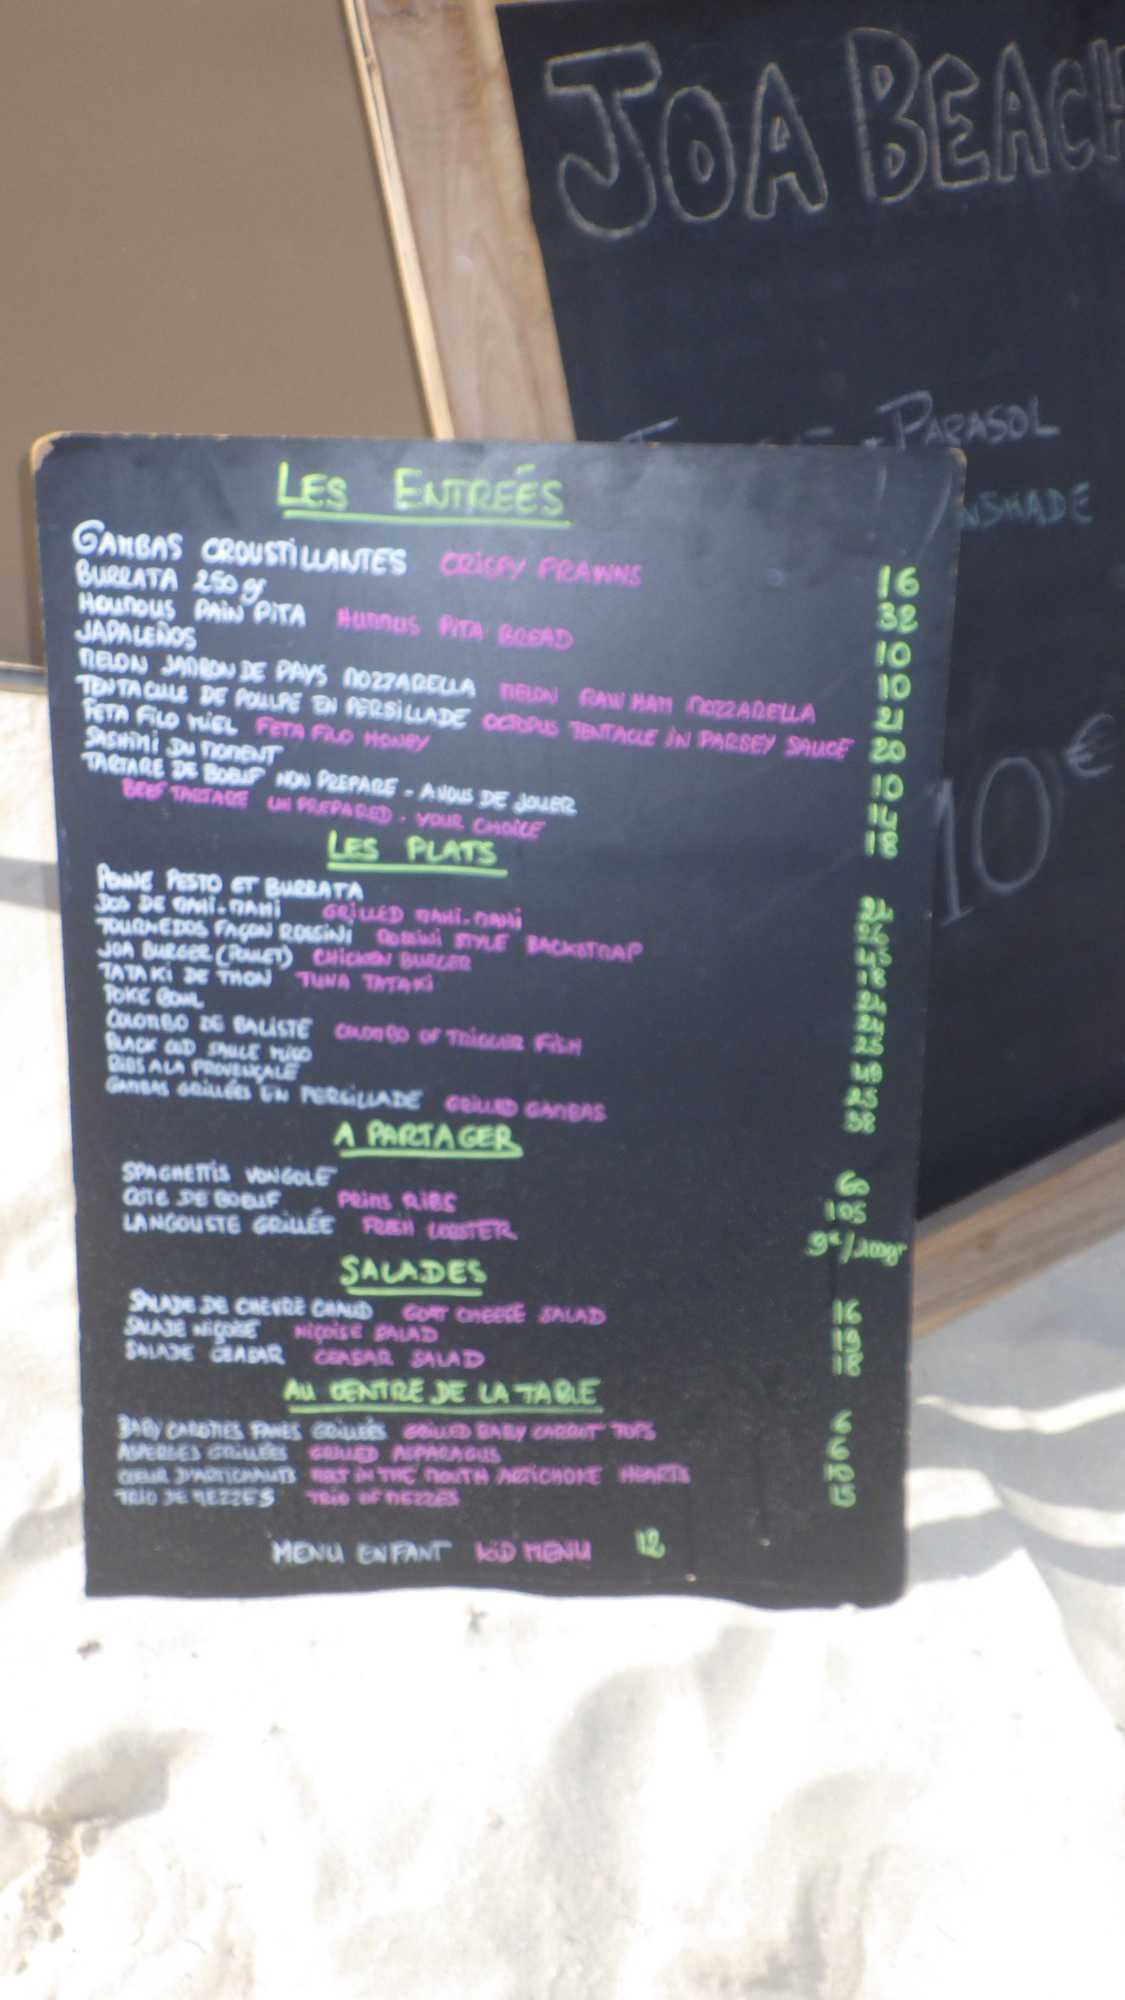 JOA BEACH
PARASOL
NSHADE
10€
LES ENTREÉS
GAMBAS CROUSTILLANTES CRISPY PRAWNS 16
BURRATA 250 gr 32
HOUMOUS PAIN PITA HUMMUS PITA BREAD 10
JAPALEÑOS 10
MELON JAMBON DE PAYS MOZZARELLA MELON RAW HAM MOZZARELLA 21
TENTACULE DE POULPE EN PERSILLADE OCTOPUS TENTACLE IN PARSEY SAUCE 20
FETA FILO MIEL FETA FILO HONEY 10
SASHIMI DU MOMENT 14
TARTARE DE BOEUF NON PREPARE - A VOUS DE JOUER 18
BEEF TARTARE UN PREPARED - YOUR CHOICE
LES PLATS
PENNE PESTO ET BURRATA
DOS DE MAHI-MAHI GRILLED MAHI-MAHI 26
TOURNEDOS FAÇON ROSSINI ROSSINI STYLE BACKSTRAP 45
JOA BURGER (POULET) CHICKEN BURGER 18
TATAKI DE THON TUNA TATAKI 24
POKE BOWL 24
COLOMBO DE BALISTE COLOMBO OF TRIGGER FISH 25
BLACK COD SAUCE MISO 49
RIBS A LA PROVENÇALE 25
GAMBAS GRILLÉES EN PERSILLADE GRILLED GAMBAS 38
A PARTAGER
SPAGHETTIS VONGOLE 60
COTE DE BOEUF PRIMS RIBS 105
LANGOUSTE GRILLÉE FRESH LOBSTER 9€/100gr
SALADES
SALADE DE CHEVRE CHAUD GOAT CHEESE SALAD 16
SALADE NIÇOISE NIÇOISE SALAD 19
SALADE CEASAR CEASAR SALAD 18
AU CENTRE DE LA TABLE
BABY CAROTTES FANES GRILLÉES GRILLED BABY CARROT TOPS 6
ASPERGES GRILLÉES GRILLED ASPARAGUS 6
COEUR D'ARTICHAUTS MELT IN THE MOUTH ARTICHOKE HEARTS 10
TRIO DE MEZZES TRIO OF MEZZES 15
MENU ENFANT KID MENU 12